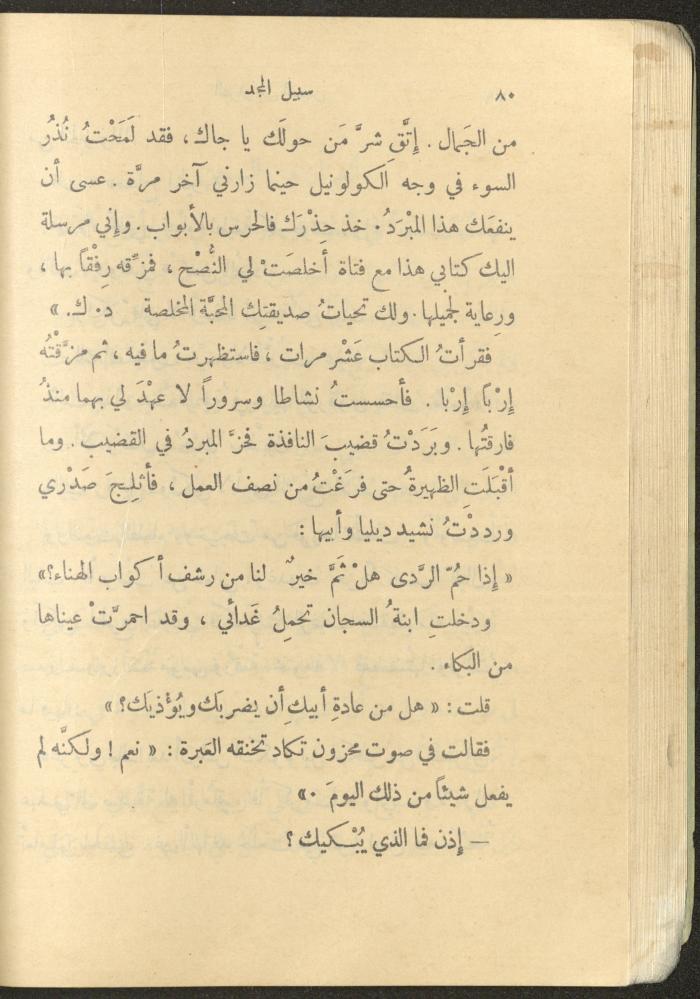 ٨٠ سبيل المجد
من الجَمال . إِتَّقِ شرَّ مَن حولَك يا جاك ، فقد لَمَحْتُ نُذُرُ
السوء في وجه الكولونيل حينما زارني آخر مرَّة . عسى أن
ينفعَك هذا المبْرَدُ ٠ خذ حِذْرَك فالحرس بالأبواب . وإني مرسلة
اليك كتابي هذا مع فتاة أخلصَتْ لي النُّصْح ، فمزِّقه رِفْقاً بها ،
ورِعاية لجميلها . ولك تحياتُ صديقتِك المحبَّة المخلصة د ٠ ك . »
فقرأتُ الكتاب عَشْر مرات ، فاستظهرتُ ما فيه ، ثم مزَّقْتُه
إِرْباً إِرْبا . فأحسستُ نشاطا وسروراً لا عهْدَ لي بهما منذُ
فارقتُها . وبَرَدْتُ قضيبَ النافذة فحزَّ المبردُ في القضيب . وما
أقْبلَتِ الظهيرةُ حتى فرَغْتُ من نصف العمل ، فأثلِجَ صَدْري
ورددْتُ نشيد ديليا وأبيها :
« إذا حُمّ الرَّدى هلْ ثَمَّ خيرٌ لنا من رشف أكواب الهناء؟»
ودخلتِ ابنةُ السجان تحمِلُ غَدائي ، وقد احمرَّتْ عيناها
من البكاء .
قلت : « هل من عادةِ أبيكِ أن يضربَك ويُؤْذيَك؟ »
فقالت في صوت محزون تكاد تخنقه العَبرة : « نعم ! ولكنَّه لم
يفعل شيئاً من ذلك اليومَ ٠ »
— إِذن فما الذي يُبْكيك ؟